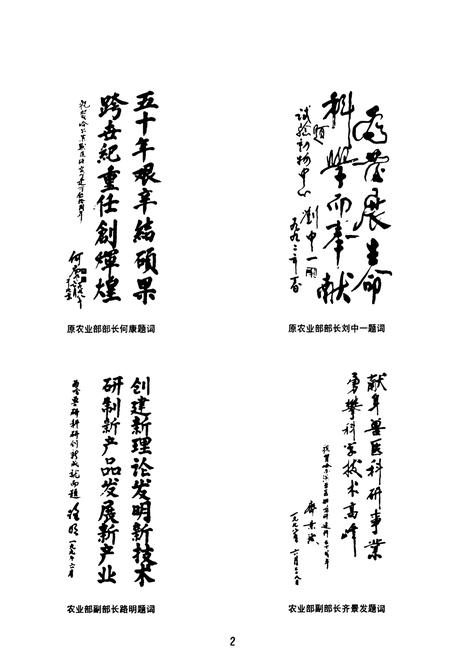 五十年艰辛结硕果
跨世纪重任创辉煌
何康
原农业部部长何康题词
为发展生命
科学而奉献
题
试验动物中心
刘中一
原农业部部长刘中一题词
创建新理论发明新技术
研制新产品发展新产业
路明
一九九八年六月
农业部副部长路明题词
献身兽医科研事业
勇攀科学技术高峰
齐景发
一九九八年六月十八日
农业部副部长齐景发题词
2